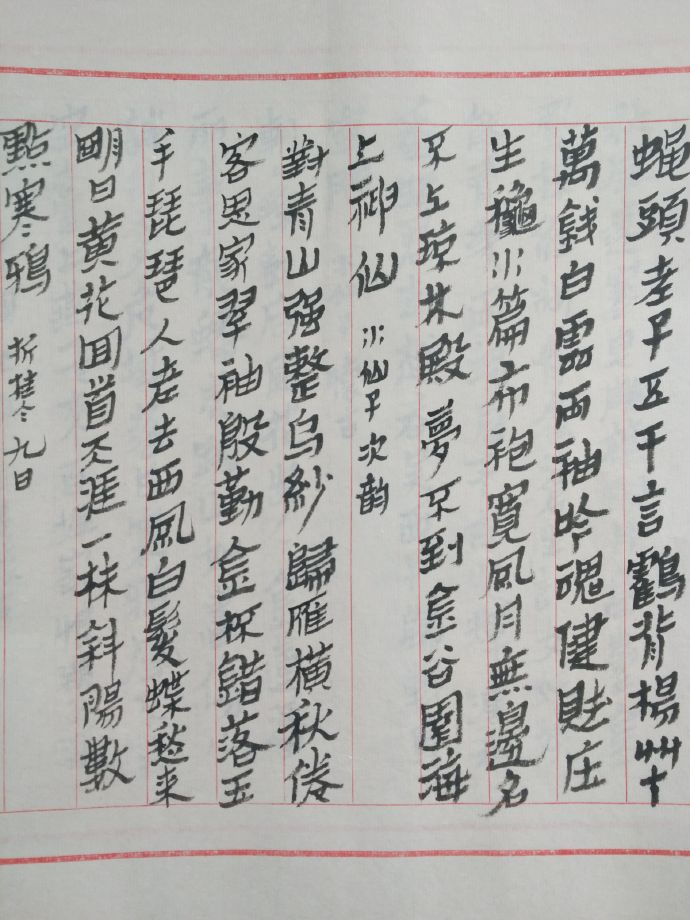 蝇頭老子五千言鶴背楊州十
萬錢白雲两袖吟魂健賦庄
生龝水篇布袍寬風月無邊名
不上琼林殿夢不到金谷園海
上神仙 水仙子次韵
對青山强整乌紗歸雁橫秋倦
客思家翠袖殷勤金杯錯落玉
手琵琶人老去西風白髮蝶愁来
明日黄花回首天涯一抹斜陽數
點寒鴉 折桂令九日